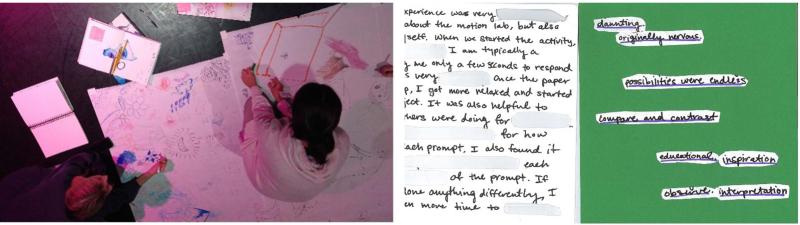 xperience was very
about the motion lab, but also
self. When we started the activity,
I am typically a
me only a few seconds to respond
s very Once the paper
p, I got more relaxed and started
ject. It was also helpful to
hers were doing for
for how
each prompt, I also found it
each
of the prompt. If
done anything differently, I
en more time to
daunting
originally nervous
possibilities were endless
compare and contrast
educational inspiration
observe interpretation